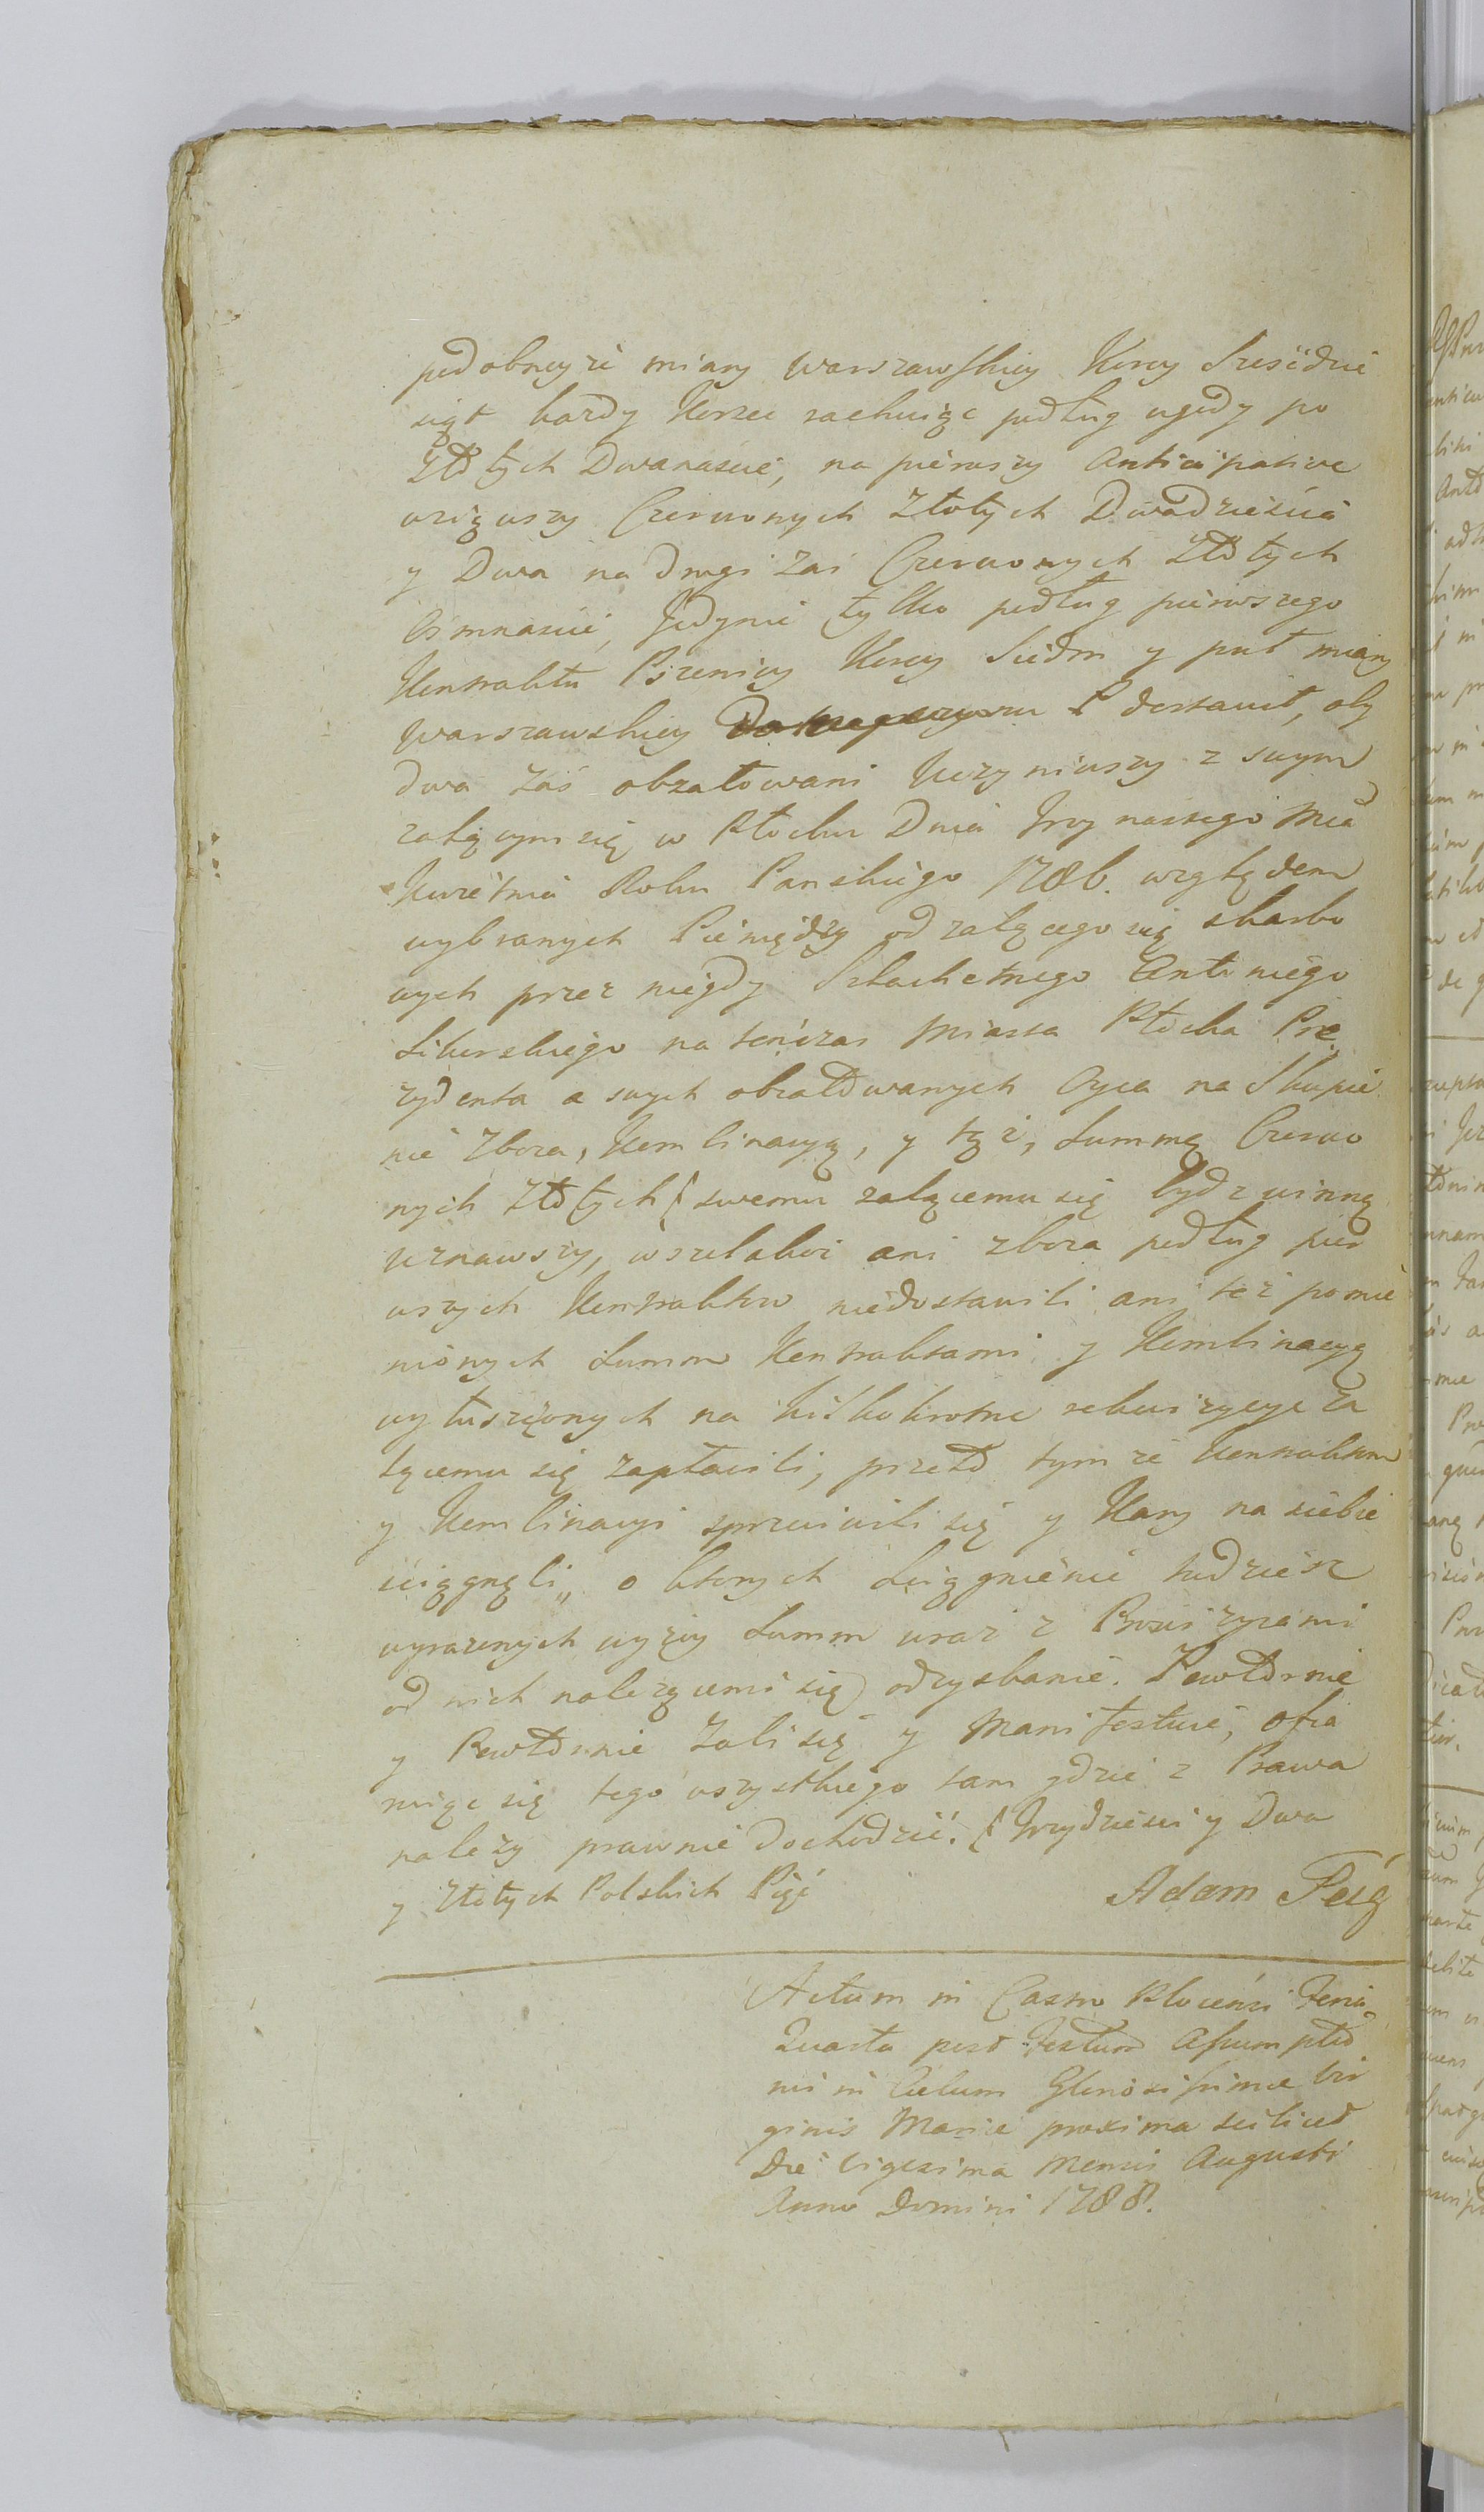 podobneyże miary Warszawskiey Korcy Sześćdzie
siąt każdy Korzec rachuiąc podług ugody po
Złotych Dwanaście, na pierwszy Anticipative
wziąwszy Czerwonych Złotych Dwadzieścia
y Dwa na drugi zaś Czerwonych Złotych
Osmnaście, Jedynie tylko podług pierwszego
Kontraktu Pszenicy Korcy Siedm y puł miary
Warszawskiey dostawił, oby
dwa zaś obżałowani Uczyniwszy z swym
żalącym się w Płocku Dnia Trzynastego Mca
Kwietnia Roku Panskiego 1786. względem
wybranych Pieniędzy od żalącego się skarbo
wych przez niegdy Szlachetnego Antoniego
Liberskiego na tenczas Miasta Płocka Pre
zydenta a swych obżałowanych Oyca na Skupie
nie Zboża, Komlinacyą, y tęż, Summę Czerwo
nych Złotych ſ swemu żalącemu się bydź winną
uznawszy, wszelakoż ani zboża podług pier
wszych Kontraktow niedostawili ani też pomie
nionych Summ Kontraktami y Komlinacyą
wytuszczonych na kilkokrotne rekwizycye ża
lącemu się zapłacili, przeto tymże Kontraktom
y Komlinacyi sprzeciwili się y Kary na siebie
ściągnęli„ o ktorych Sciągnienie tudziesz
wyrażonych wyżey Summ wraz z Prowizyami
od nich należącemi się odzyskanie. Powtornie
y Powtornie Żali się y Manifestuie, ofia
ruiąc się tego wszystkiego tam gdzie z Prawa
należy prawnie dochodzić. ſ Trzydzieści y Dwa
y Złotych Polskich Pięć
Adam
Actum in Castro Plocensi Feria
Quarta post Festum Assumptio
nis in Caelum Gloriosissimae Vir
ginis Mariae proxima scilicet
Die Vigesima Mensis Augusti
Anno Domini 1788.